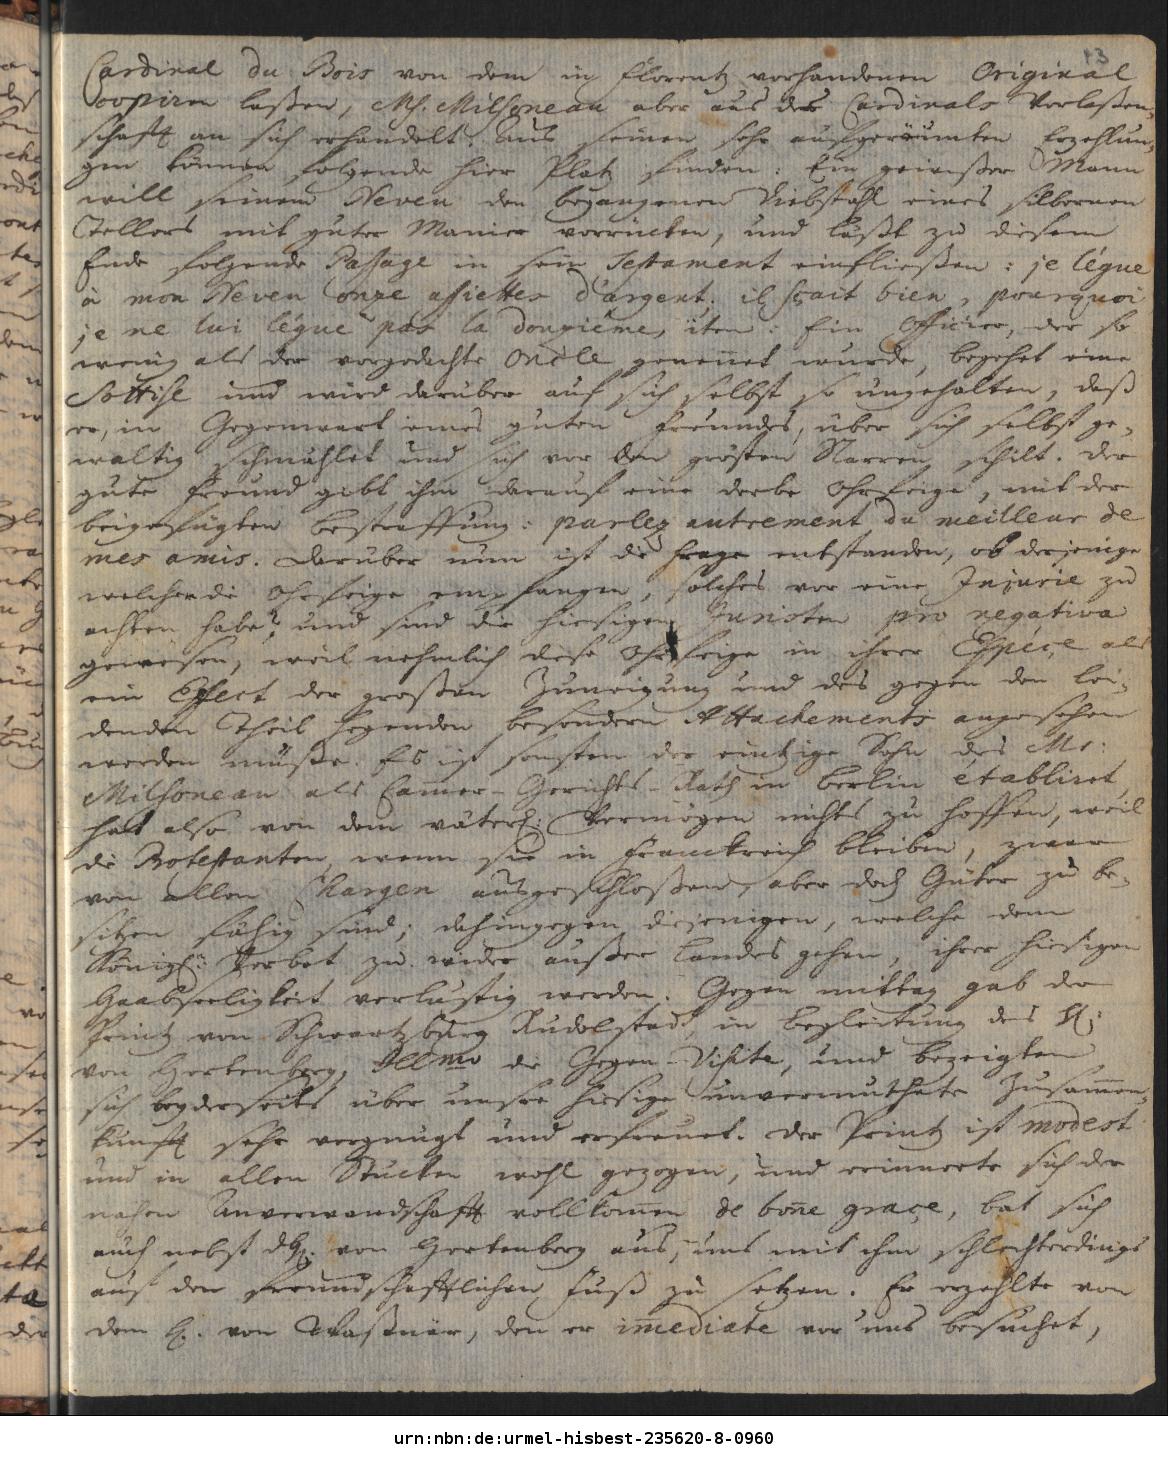 13
Cardinal du Bois von dem in Florentz vorhandenen Original
copiren laßen, Mr. Milsoneau aber aus des Cardinals Verlaßen,
schafft an sich erhandelt. Aus seinen sehr aufgeräumten Erzehlun,
gen können folgende hier Platz finden: Ein gewißer Mann
will seinem Neven den begangenen Diebstahl eines silbernen
Tellers mit guter Manier vorrücken, und läßt zu diesem
Ende folgende Passage in sein Testament einfließen: je légue
à mon Neven onze assiettes d'argent. il sçait bien, pourquoi
je ne lui légue pas la douziéme, iten: Ein Officier, der so
wenig als der vorgedachte Oncle genennet wurde, begehet eine
Sottise und wird darüber auf sich selbst so ungehalten, daß
er, in Gegenwart eines guten Freundes, über sich selbst ge,
waltig schmählet und sich vor den grösten Narren schilt. Der
gute Freund gibt ihm darauf eine derbe Ohrfeige, mit der
beigefügten Bestraffung: parlez autrement du meilleur de
mes amis. Darüber nun ist die Frage entstanden, ob derjenige
welcher die Ohrfeige empfangen, solches vor eine Injurie zu
achten habe? und sind die hiesigen Juristen pro negativa
gewesen, weil nehmlich diese Ohrfeige in ihrer Espéce als
ein Effect der großen Zuneigung und des gegen den lei,
denden Theil hegenden besondern Attachements angesehen
werden müße. Es ist sonsten der eintzige Sohn des Mr:
Milsoneau als Cammer-Gerichts-Rath in Berlin établiret,
hat also von dem väterl: Vermögen nichts zu hoffen, weil
die Protestanten, wenn sie in Franckreich bleiben, zwar
von allen Chargen ausgeschloßen, aber doch Güter zu be,
sitzen fähig sind; dahingegen diejenigen, welche dem
Königl: Verbot zu wider außer Landes gehen, ihrer hiesigen
Haabseeligkeit verlustig werden. Gegen mittag gab der
Printz von Schwartzburg Rudolstadt, in Begleitung des H:
von Hertenberg, Illmo die Gegen-Visite, und bezeigten
sich beyderseits über unsre hiesige unvermuthete Zusamen,
kunfft sehr vergnügt und erfreuet. Der Printz ist modest
und in allen Stücken wohl gezogen, und erinnerte sich der
nahen Anverwandschafft vollkomen de bonne grace, bat sich
auch nebst dH. von Hertenberg aus, uns mit ihm schlechterdings
auf den freundschafftlichen Fuß zu setzen. Er erzehlte von
dem H. von Waßnär, den er imediate vor uns besuchet,
urn:nbn:de:urmel-hisbest-235620-8-0960